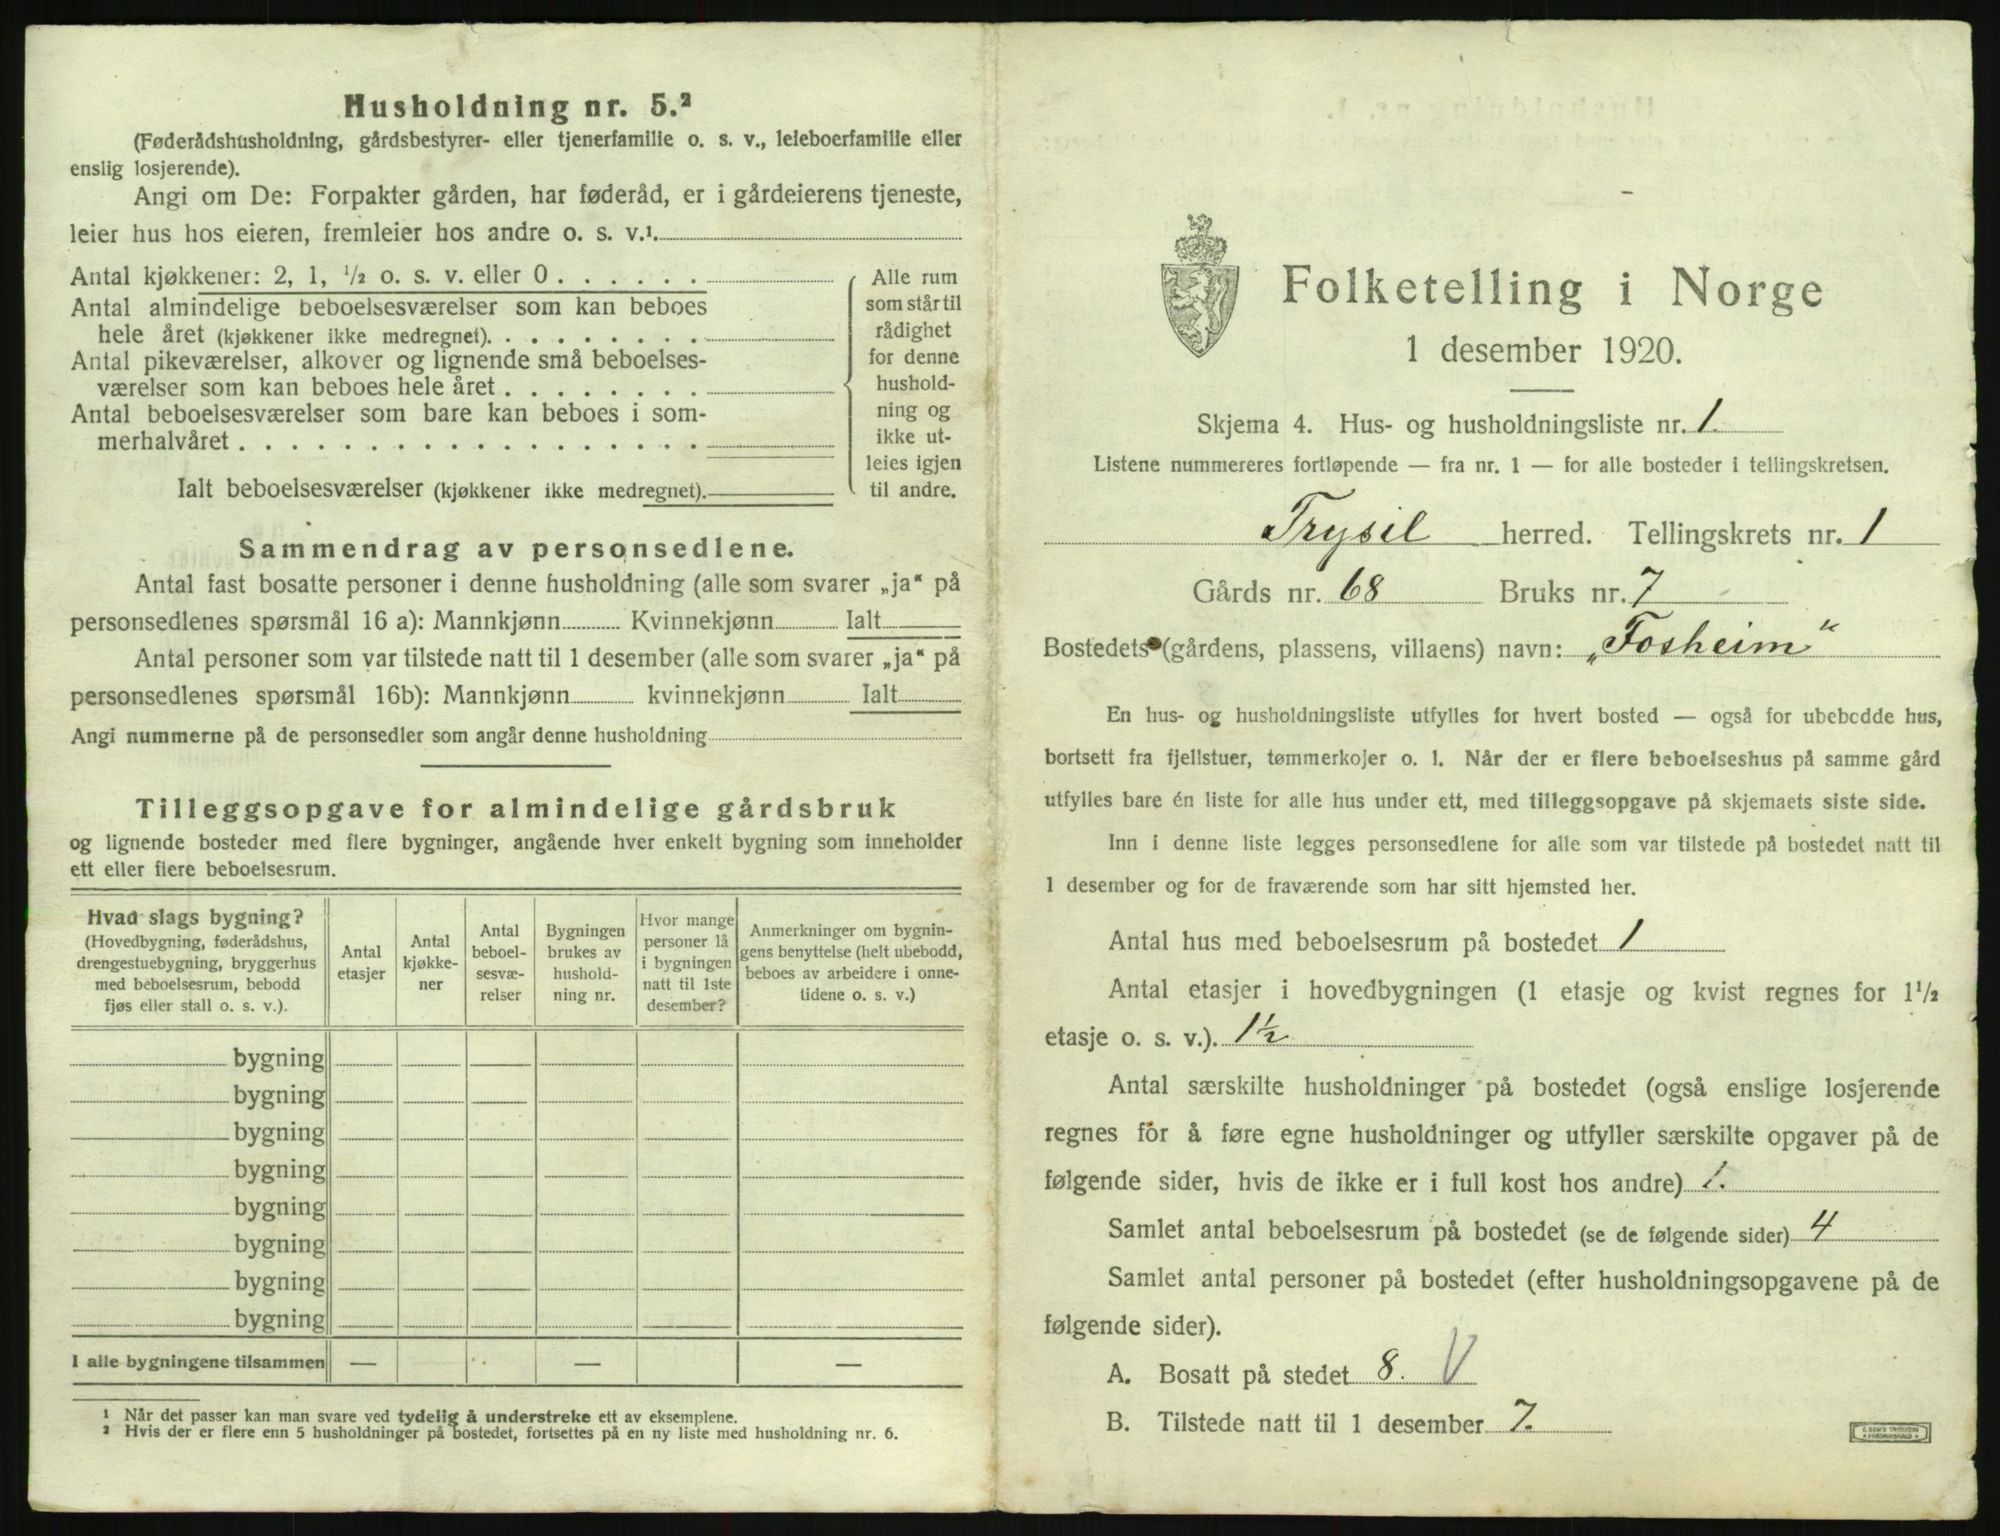 Husholdning nr. 5.²
(Føderådshusholdning, gårdsbestyrer- eller tjenerfamilie o. s. v., leieboerfamilie eller
enslig losjerende).
Angi om De: Forpakter gården, har føderåd, er i gårdeierens tjeneste,
leier hus hos eieren, fremleier hos andre o. s. v.¹
Antal kjøkkener: 2, 1, ½ o. s. v. eller 0 . . . . . .
Antal almindelige beboelsesværelser som kan beboes
hele året (kjøkkener ikke medregnet). . . . . . . . .
Antal pikeværelser, alkover og lignende små beboelses-
værelser som kan beboes hele året . . . . . . . .
Antal beboelsesværelser som bare kan beboes i som-
merhalvåret . . . . . . . . . . . . . . . . . .
Ialt beboelsesværelser (kjøkkener ikke medregnet).
Alle rum
som står til
rådighet
for denne
hushold-
ning og
ikke ut-
leies igjen
til andre.
Sammendrag av personsedlene.
Antal fast bosatte personer i denne husholdning (alle som svarer „ja“ på
personsedlenes spørsmål 16 a): Mannkjønn Kvinnekjønn Ialt
Antal personer som var tilstede natt til 1 desember (alle som svarer „ja“ på
personsedlenes spørsmål 16b): Mannkjønn kvinnekjønn Ialt
Angi nummerne på de personsedler som angår denne husholdning
Tilleggsopgave for almindelige gårdsbruk
og lignende bosteder med flere bygninger, angående hver enkelt bygning som inneholder
ett eller flere beboelsesrum.
Hvad slags bygning?
(Hovedbygning, føderådshus,
drengestuebygning, bryggerhus
med beboelsesrum, bebodd
fjøs eller stall o. s. v.).
Antal
etasjer
Antal
kjøkke-
ner
Antal
beboel-
sesvæ-
relser
Bygningen
brukes av
hushold-
ning nr.
Hvor mange
personer lå
i bygningen
natt til 1ste
desember?
Anmerkninger om bygnin-
gens benyttelse (helt ubebodd,
beboes av arbeidere i onne-
tidene o. s. v.)
bygning
bygning
bygning
bygning
bygning
bygning
bygning
bygning
I alle bygningene tilsammen — — —
¹ Når det passer kan man svare ved tydelig å understreke ett av eksemplene.
² Hvis der er flere enn 5 husholdninger på bostedet, fortsettes på en ny liste med husholdning nr. 6.
Folketelling i Norge
1 desember 1920.
Skjema 4. Hus- og husholdningsliste nr. 1.
Listene nummereres fortløpende — fra nr. 1 — for alle bosteder i tellingskretsen.
Trysil herred. Tellingskrets nr. 1
Gårds nr. 68 Bruks nr. 7
Bostedets (gårdens, plassens, villaens) navn: „Fosheim“
En hus- og husholdningsliste utfylles for hvert bosted — også for ubebodde hus,
bortsett fra fjellstuer, tømmerkojer o. l. Når der er flere beboelseshus på samme gård
utfylles bare én liste for alle hus under ett, med tilleggsopgave på skjemaets siste side.
Inn i denne liste legges personsedlene for alle som var tilstede på bostedet natt til
1 desember og for de fraværende som har sitt hjemsted her.
Antal hus med beboelsesrum på bostedet 1
Antal etasjer i hovedbygningen (1 etasje og kvist regnes for 1½
etasje o. s. v.). 1½
Antal særskilte husholdninger på bostedet (også enslige losjerende
regnes for å føre egne husholdninger og utfyller særskilte opgaver på de
følgende sider, hvis de ikke er i full kost hos andre) 1.
Samlet antal beboelsesrum på bostedet (se de følgende sider) 4
Samlet antal personer på bostedet (efter husholdningsopgavene på de
følgende sider).
A. Bosatt på stedet 8. V
B. Tilstede natt til 1 desember 7.